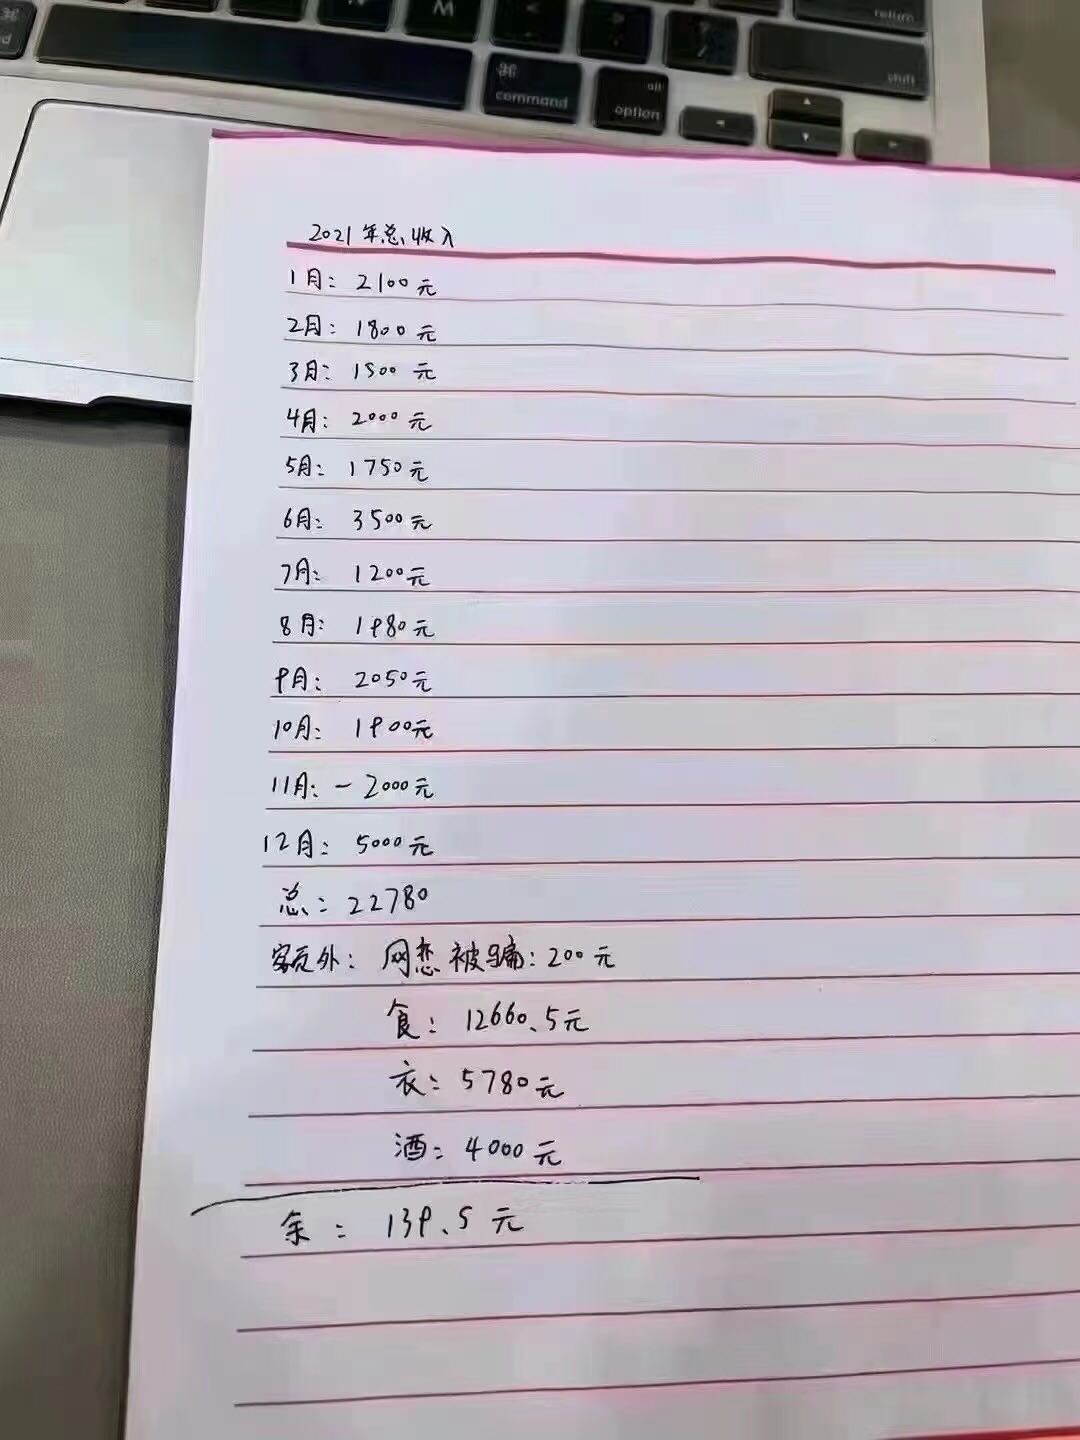 return
shift
command
option
alt
2021年总收入
1月: 2100元
2月: 1800元
3月: 1500元
4月: 2000元
5月: 1750元
6月: 3500元
7月: 1200元
8月: 1980元
9月: 2050元
10月: 1900元
11月: -2000元
12月: 5000元
总: 22780
额外: 网恋被骗: 200元
食: 12660.5元
衣: 5780元
酒: 4000元
余: 139.5元